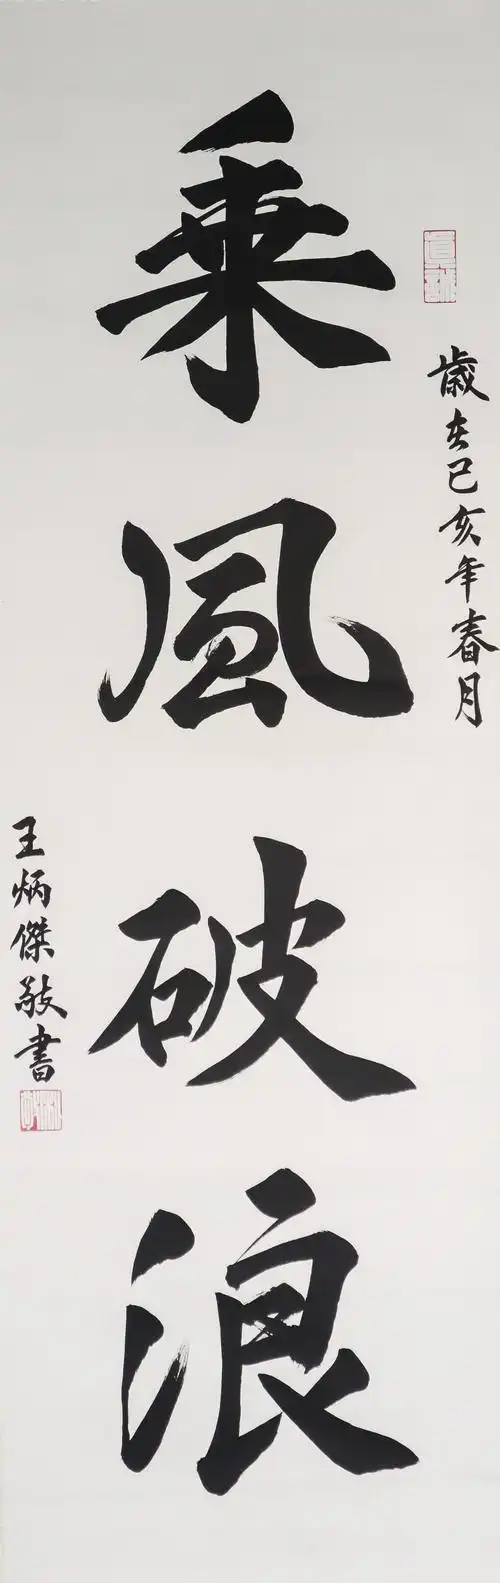 歲在己亥年春月
乘風破浪
王炳傑敬書